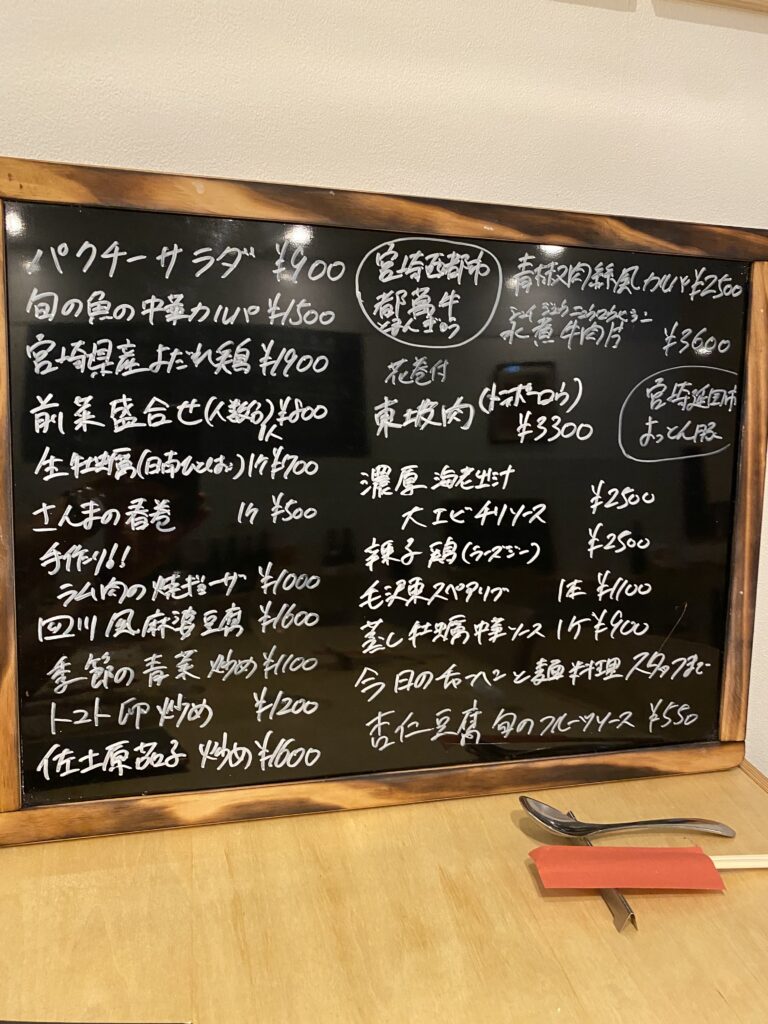 パクチーサラダ ¥900
旬の魚の中華カルパ ¥1500
宮崎県産よだれ鶏 ¥1900
前菜盛合せ(人数分) ¥800
1人
生牡蠣(日南ひとしお) 1ケ ¥700
さんまの春巻 1ケ ¥500
手作り!!
ラム肉の焼ギョーザ ¥1000
四川風麻婆豆腐 ¥1600
季節の青菜炒め ¥1100
トマト卵炒め ¥1200
佐土原茄子炒め ¥1600
宮崎西都市
都萬牛
とまんぎゅう
肉絲風カルパ ¥2500
水煮牛肉片 ¥3600
花巻付
東坡肉(トンポーロウ)
¥3300
宮崎延岡市
よっとん豚
濃厚海老出汁
大エビチリソース ¥2500
辣子鶏(ラーズジー) ¥2500
毛沢東スペアリブ 1本 ¥1100
蒸し牡蠣中華ソース 1ケ ¥900
今日のチャーハンと麺料理 スタッフまで
杏仁豆腐旬のフルーツソース ¥550